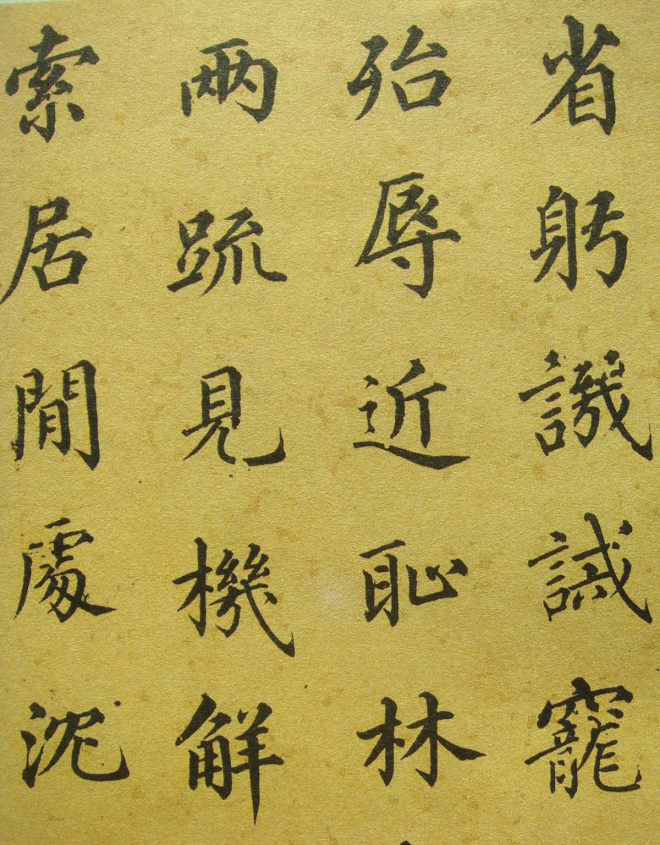 省躬譏誡寵
殆辱近耻林
兩疏見機解
索居閒處沈